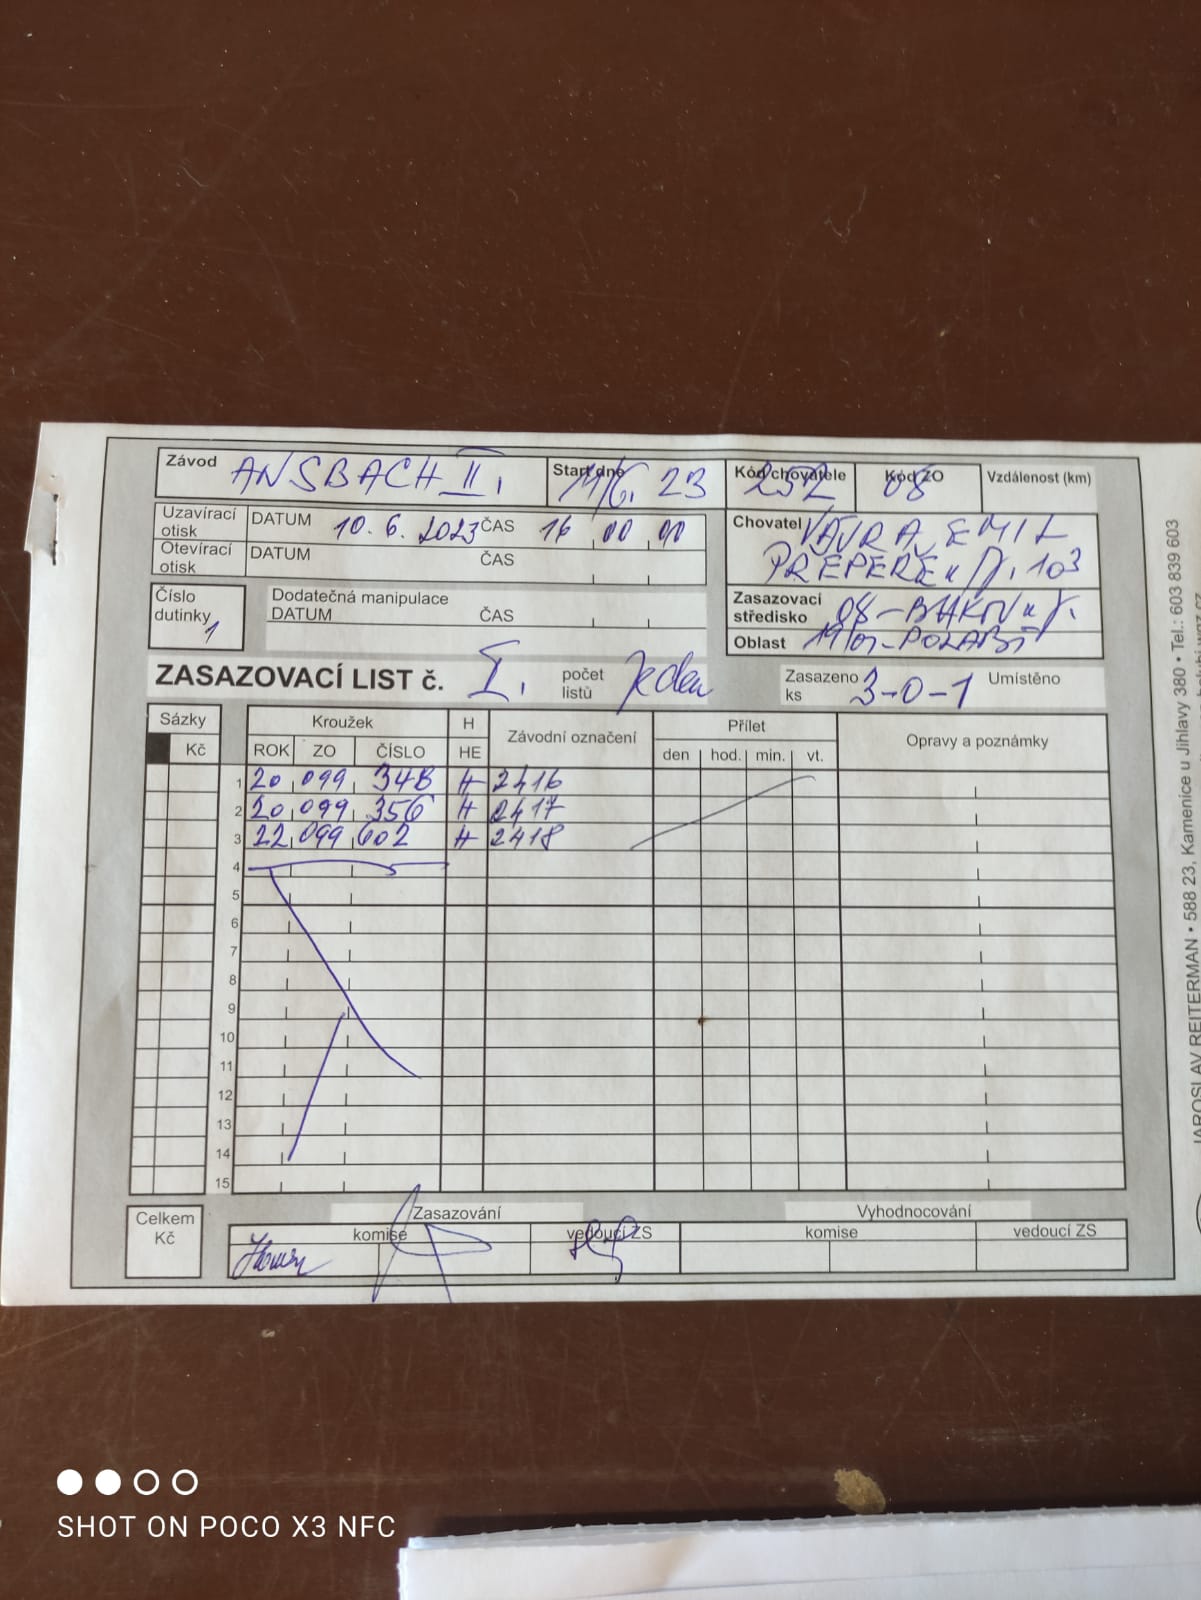 Závod ANSBACH II. Start dne 11/6. 23 Kód chovatele 252 Kód ZO 08 Vzdálenost (km)
Uzavírací otisk DATUM 10. 6. 2023 ČAS 16 00 00
Otevírací otisk DATUM ČAS
Chovatel VÁVRA EMIL
PŘEPEŘE 103
Číslo dutinky 1
Dodatečná manipulace
DATUM ČAS
Zasazovací středisko 08-BAKOV n J.
Oblast POLABÍ
ZASAZOVACÍ LIST č. I. počet listů Jeden Zasazeno ks 3-0-1 Umístěno
Sázky Kroužek H Závodní označení Přílet Opravy a poznámky
Kč ROK ZO ČÍSLO HE den hod. min. vt.
1 20 099 348 H 2416
2 20 099 356 H 2417
3 22 099 602 H 2418
4
5
6
7
8
9
10
11
12
13
14
15
Celkem Kč
Zasazování Vyhodnocování
komise vedoucí ZS komise vedoucí ZS
JAROSLAV REITERMAN • 588 23, Kamenice u Jihlavy 380 • Tel.: 603 839 603
SHOT ON POCO X3 NFC